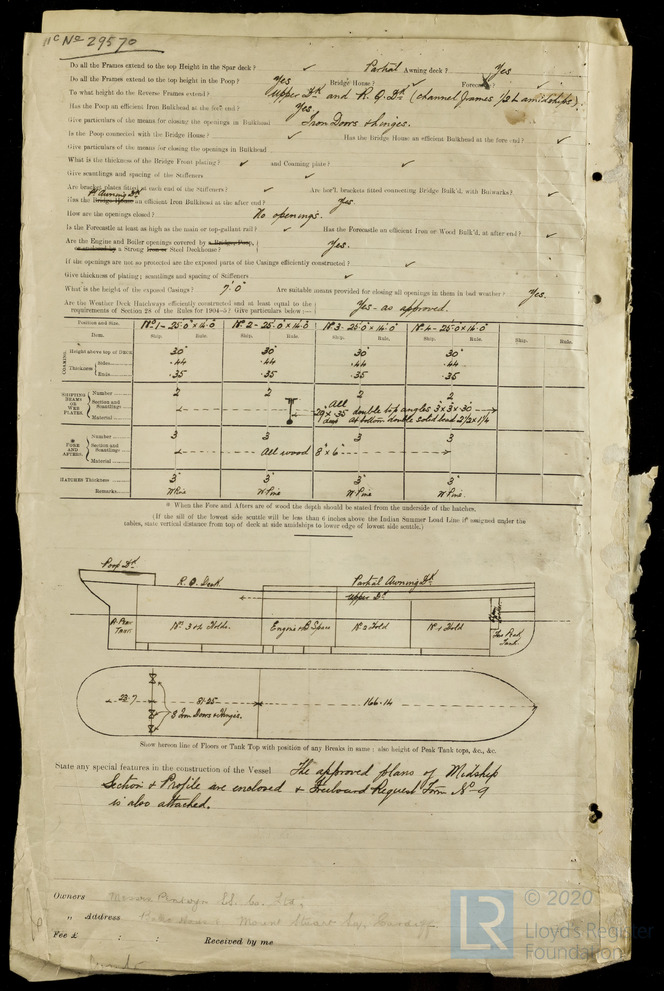 No 29570
Do all the Frames extend to the top Height in the Spar deck? ✓ Partial Awning deck? Yes
Do all the Frames extend to the top height in the Poop? Yes Bridge House? ✓ Forecastle? ✓
To what height do the Reverse Frames extend? Upper Dk and R. Q. Dk (channel frames 1/2 L amidships).
Has the Poop an efficient Iron Bulkhead at the fore end? Yes.
Give particulars of the means for closing the openings in Bulkhead Iron Doors & hinges.
Is the Poop connected with the Bridge House? ✓ Has the Bridge House an efficient Bulkhead at the fore end? ✓
Give particulars of the means for closing the openings in Bulkhead
What is the thickness of the Bridge Front plating? ✓ and Coaming plate? ✓
Give scantlings and spacing of the Stiffeners ✓
Are bracket plates fitted at each end of the Stiffeners? ✓ Are hor'l. brackets fitted connecting Bridge Bulk'd. with Bulwarks? ✓
Has the Bridge House Pt Awning Dk an efficient Iron Bulkhead at the after end? Yes.
How are the openings closed? No openings.
Is the Forecastle at least as high as the main or top-gallant rail? ✓ Has the Forecastle an efficient Iron or Wood Bulk'd. at after end? ✓
Are the Engine and Boiler openings covered by a Bridge, Poop,
or enclosed by a Strong Iron or Steel Deckhouse? Yes.
If the openings are not so protected are the exposed parts of the Casings efficiently constructed? ✓
Give thickness of plating; scantlings and spacing of Stiffeners ✓
What is the height of the exposed Casings? 7'.0" Are suitable means provided for closing all openings in them in bad weather? Yes.
Are the Weather Deck Hatchways efficiently constructed and at least equal to the
requirements of Section 28 of the Rules for 1904-5? Give particulars below:— Yes - as approved.
Position and Size. No 1 - 25.0 x 16.0 No 2 - 25.0 x 16.0 No 3 - 25.0 x 16.0 No 4 - 25.0 x 16.0
Item. Ship. Rule. Ship. Rule. Ship. Rule. Ship. Rule. Ship. Rule.
COAMING. Height above top of Deck 30" 30" 30" 30"
Thickness Sides .44 .44 .44 .44
Ends .35 .35 .35 .35
SHIFTING BEAMS OR WEB PLATES. Number 2 2 2 2
Section and Scantlings All 29 x .35 double top angles 3 x 3 x .30
Material at bottom double solid bead 2 1/2 x 1 1/4
* FORE AND AFTERS. Number 3 3 3 3
Section and Scantlings All wood 8" x 6"
Material
HATCHES Thickness 3" 3" 3" 3"
Remarks W Pine W Pine W Pine W Pine.
* When the Fore and Afters are of wood the depth should be stated from the underside of the hatches.
(If the sill of the lowest side scuttle will be less than 6 inches above the Indian Summer Load Line if assigned under the
tables, state vertical distance from top of deck at side amidships to lower edge of lowest side scuttle.)
Poop Dk
R. Q. Deck
Partial Awning Dk
Upper Dk
A. Peak Tank
No 3 & 4 Holds.
Engine & B Space
No 2 Hold
No 1 Hold
Fore Peak Tank.
23.7
81.25
166.14
8 Iron Doors & Hinges.
Show hereon line of Floors or Tank Top with position of any Breaks in same: also height of Peak Tank tops, &c., &c.
State any special features in the construction of the Vessel The approved plans of Midship
Section & Profile are enclosed & Freeboard Request Form No 9
is also attached.
Owners Messrs Penlwyn SS. Co. Ltd.
" Address Mount Stuart Sq. Cardiff
Fee £ : : Received by me
LR © 2020
Lloyd's Register
Foundation